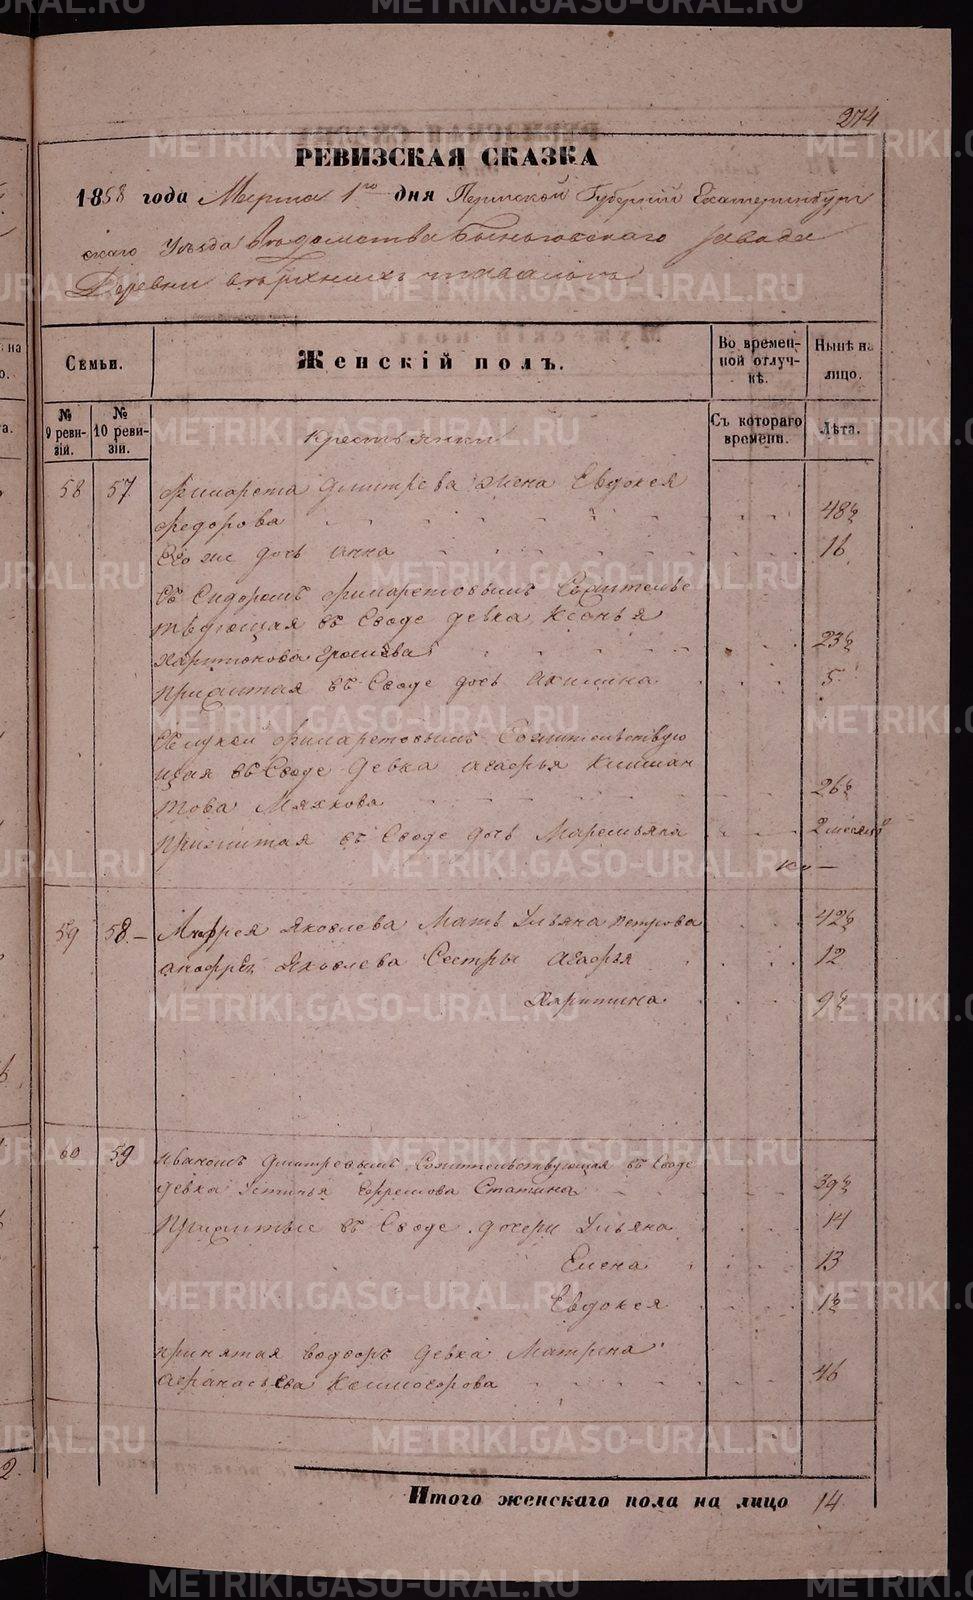 274
РЕВИЗСКАЯ СКАЗКА
1858 года Марта 1го дня Пермской Губернии Екатеринбург
скаго Уезда Ведомства Быньговскаго завода
Деревни верхнихъ тавологъ
Семьи.
Женскій полъ.
Во времен-
ной отлуч-
кѣ.
Нынѣ на
лицо.
№
9 реви-
зіи.
№
10 реви-
зіи.
Крестьянки
Съ котораго
времени.
Лѣта.
58 57 Филарета Дмитрева жена Евдокея
Федорова 48½
Его же дочь Анна 16
Съ Сидоромъ Филаретовымъ Сожительс
твующая въ Своде девка Ксенья
Харитонова 23½
Прижитая въ Своде дочь Акилина 5
Филаретовымъ Сожительствую
щая въ Своде Девка Агафья
Мяхкова 26½
Прижитая въ Своде дочь Маремьяна 2 месяца
59 58 Яковлева Мать Ульяна Петрова 42½
Яковлева Сестры Агафья 12
Харитина 9½
60 59 Иваномъ Дмитревымъ Сожительствующая въ Своде
девка Устинья Ефремова 39½
Прижитые въ Своде дочери Ульяна 14
Елена 13
Евдокея 1½
принятая водворъ девка Матрена
Афанасьева 46
Итого женскаго пола на лицо 14
METRIKI.GASO-URAL.RU